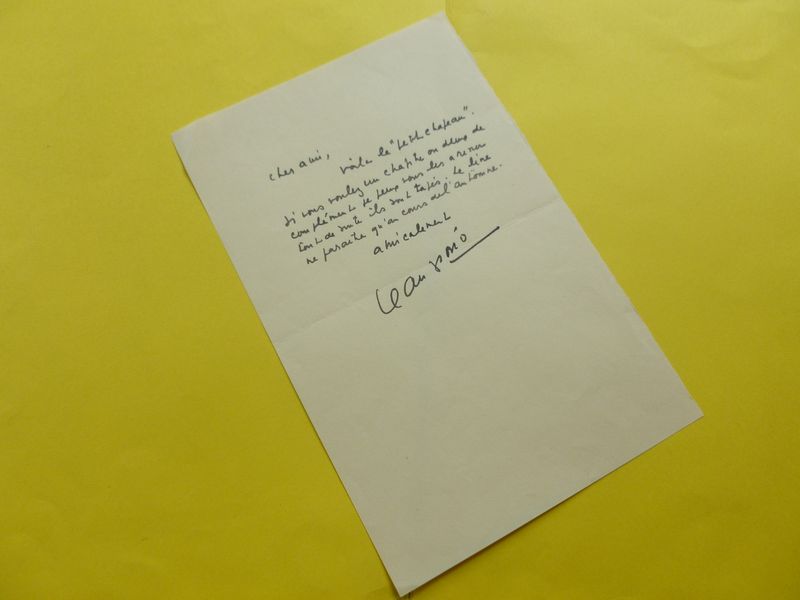 cher ami,
voila le "petit chapeau".
si vous voulez un chapitre ou deux de
complément je peux vous les adresser
tout de suite ils sont tapés. Le livre
ne paraitra qu'au cours de l'automne.
amicalement
Jean Giono